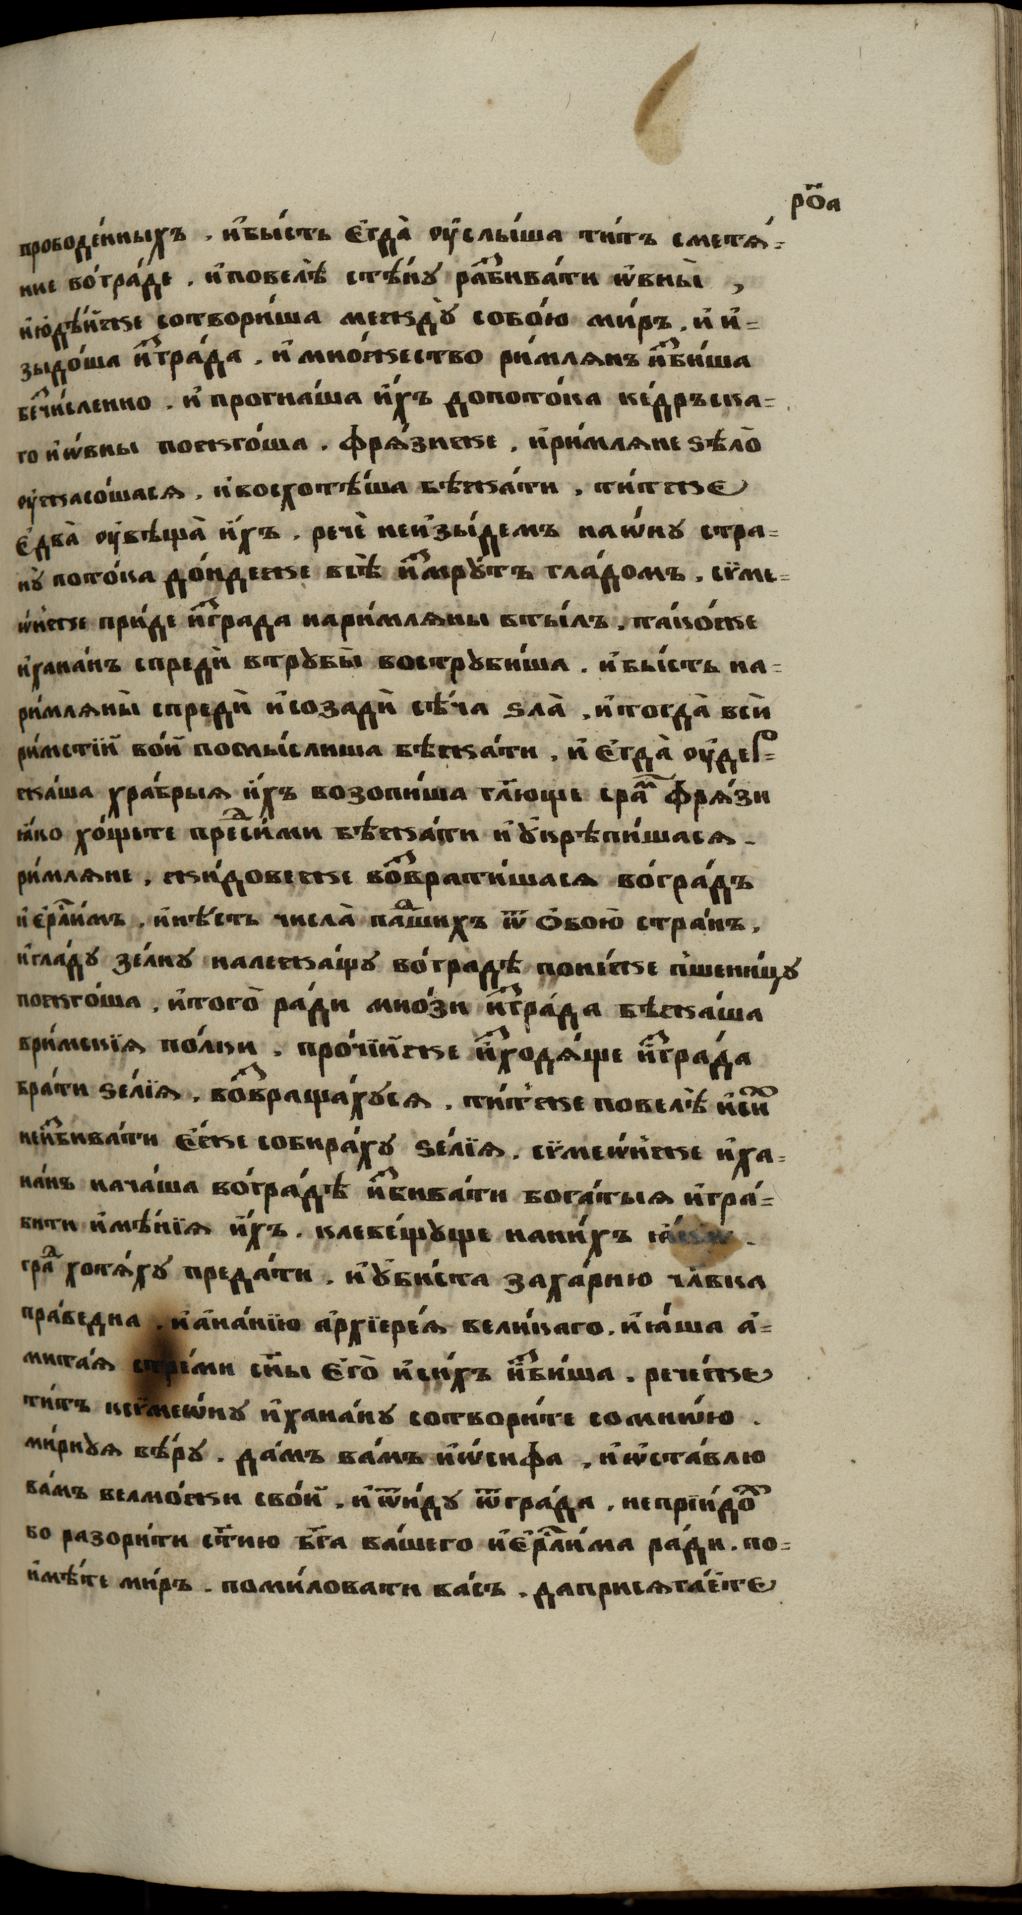 ро҃а
прободе́нныхъ . и҆бы́сть є҆гда̀ ᲂу҆слы́ша ти́тъ смѧте́=
ние во́гра́де . и҆повелѣ̀ стѣ́нꙋ разбива́ти ѡ҆вны̀ ,
и҆ю҆дѣ́иже сотвори́ша междꙋ̀ собо́ю ми́ръ . и҆ и҆=
зыдо́ша и҆згра́да . и҆ мно́жество ри́млѧнъ и҆зби́ша
безчи́сленно . и҆ прогна́ша и҆́хъ допото́ка ке́дръска=
го и҆ѡ҆вны пожго́ша . фрѧ́зиже . и҆ри́млѧне ѕѣлѡ̀
ᲂу҆жасо́шасѧ . и҆восхотѣ́ша бѣжа́ти . ти́тже
є҆два̀ ᲂу҆вѣща̀ и҆́хъ . речѐ неи҆зы́демъ наѡ҆́нꙋ стра=
нꙋ̀ пото́ка до́ндеже всѣ̀ и҆змрꙋ́тъ гла́домъ . сѷме=
ѡ҆́нже прі́де и҆зграда нари́млѧны вты́лъ . та́ко́же
и҆хана́нъ спредѝ втрꙋбы̀ вострꙋби́ша . и҆бы́сть на=
ри́млѧны̀ спредѝ и҆созадѝ сѣ́ча ѕла̀ . и҆тогда̀ всѝ
ри́мстїи во́и помы́слиша бѣжа́ти . и҆ є҆гда̀ ᲂу҆дер=
жа́ша хра́брыѧ и҆́хъ возопи́ша гл҃юще сра́м фрѧ́зи
ꙗ҆́ко хо́щете предси́ми бѣжа́ти и҆ ᲂу҆крѣпи́шасѧ .
ри́млѧне . жи́довеже возврати́шасѧ во́гра́дъ
и҆ерⷭ҇ли́мъ . и҆нѣ́сть числа̀ па́дшихъ ѿ ѻ҆бою̀ стра́нъ .
и҆гла́дꙋ зе́лнꙋ належа́щꙋ во́градѣ̀ поне́же пшени́цꙋ
пожго́ша . и҆того̀ ра́ди мно́зи и҆згра́да бѣжа́ша
ври́мскїѧ по́лки . про́чїиже и҆сходѧ́ще и҆згра́да
бра́ти ѕе́лїѧ . возвраща́хꙋсѧ . ти́тже повелѣ̀ и҆си́х
неи҆збива́ти є҆́же собира́хꙋ ѕе́лїѧ . сѷмеѡ҆́нже и҆ха=
на́нъ нача́ша во́градѣ̀ и҆збива́ти бога́тыѧ и҆гра́=
бити и҆мѣ́нїѧ и҆́хъ . клеве́щꙋще нани́хъ ꙗ҆́кѡ .
гра́д хотѧ́хꙋ преда́ти . и҆ ᲂу҆би́ста заха́рию чл҃вка
пра́ведна . и҆а҆на́нїю а҆рхїере́ѧ вели́каго . и҆ꙗ҆́ша а҆=
мита́ѧ стре́ми сн҃ы є҆го̀ и҆си́хъ и҆зби́ша . рече́же
ти́тъ ксѷмеѡ҆́нꙋ и҆хана́нꙋ сотвори́те сомно́ю .
ми́рнꙋѧ вѣ́рꙋ . да́мъ ва́мъ и҆ѡ҆́сифа . и҆ ѡ҆ста́влю
ва́мъ велмо́жи свои҆̀ . и҆ ѿи́дꙋ ѿгра́да . непрїидо́х
бо разори́ти ст҃ню бг҃а ва́шего и҆ерⷭ҇ли́ма ра́ди . по=
и҆мѣ́те ми́ръ . поми́ловати ва́съ . даприсѧга́ете